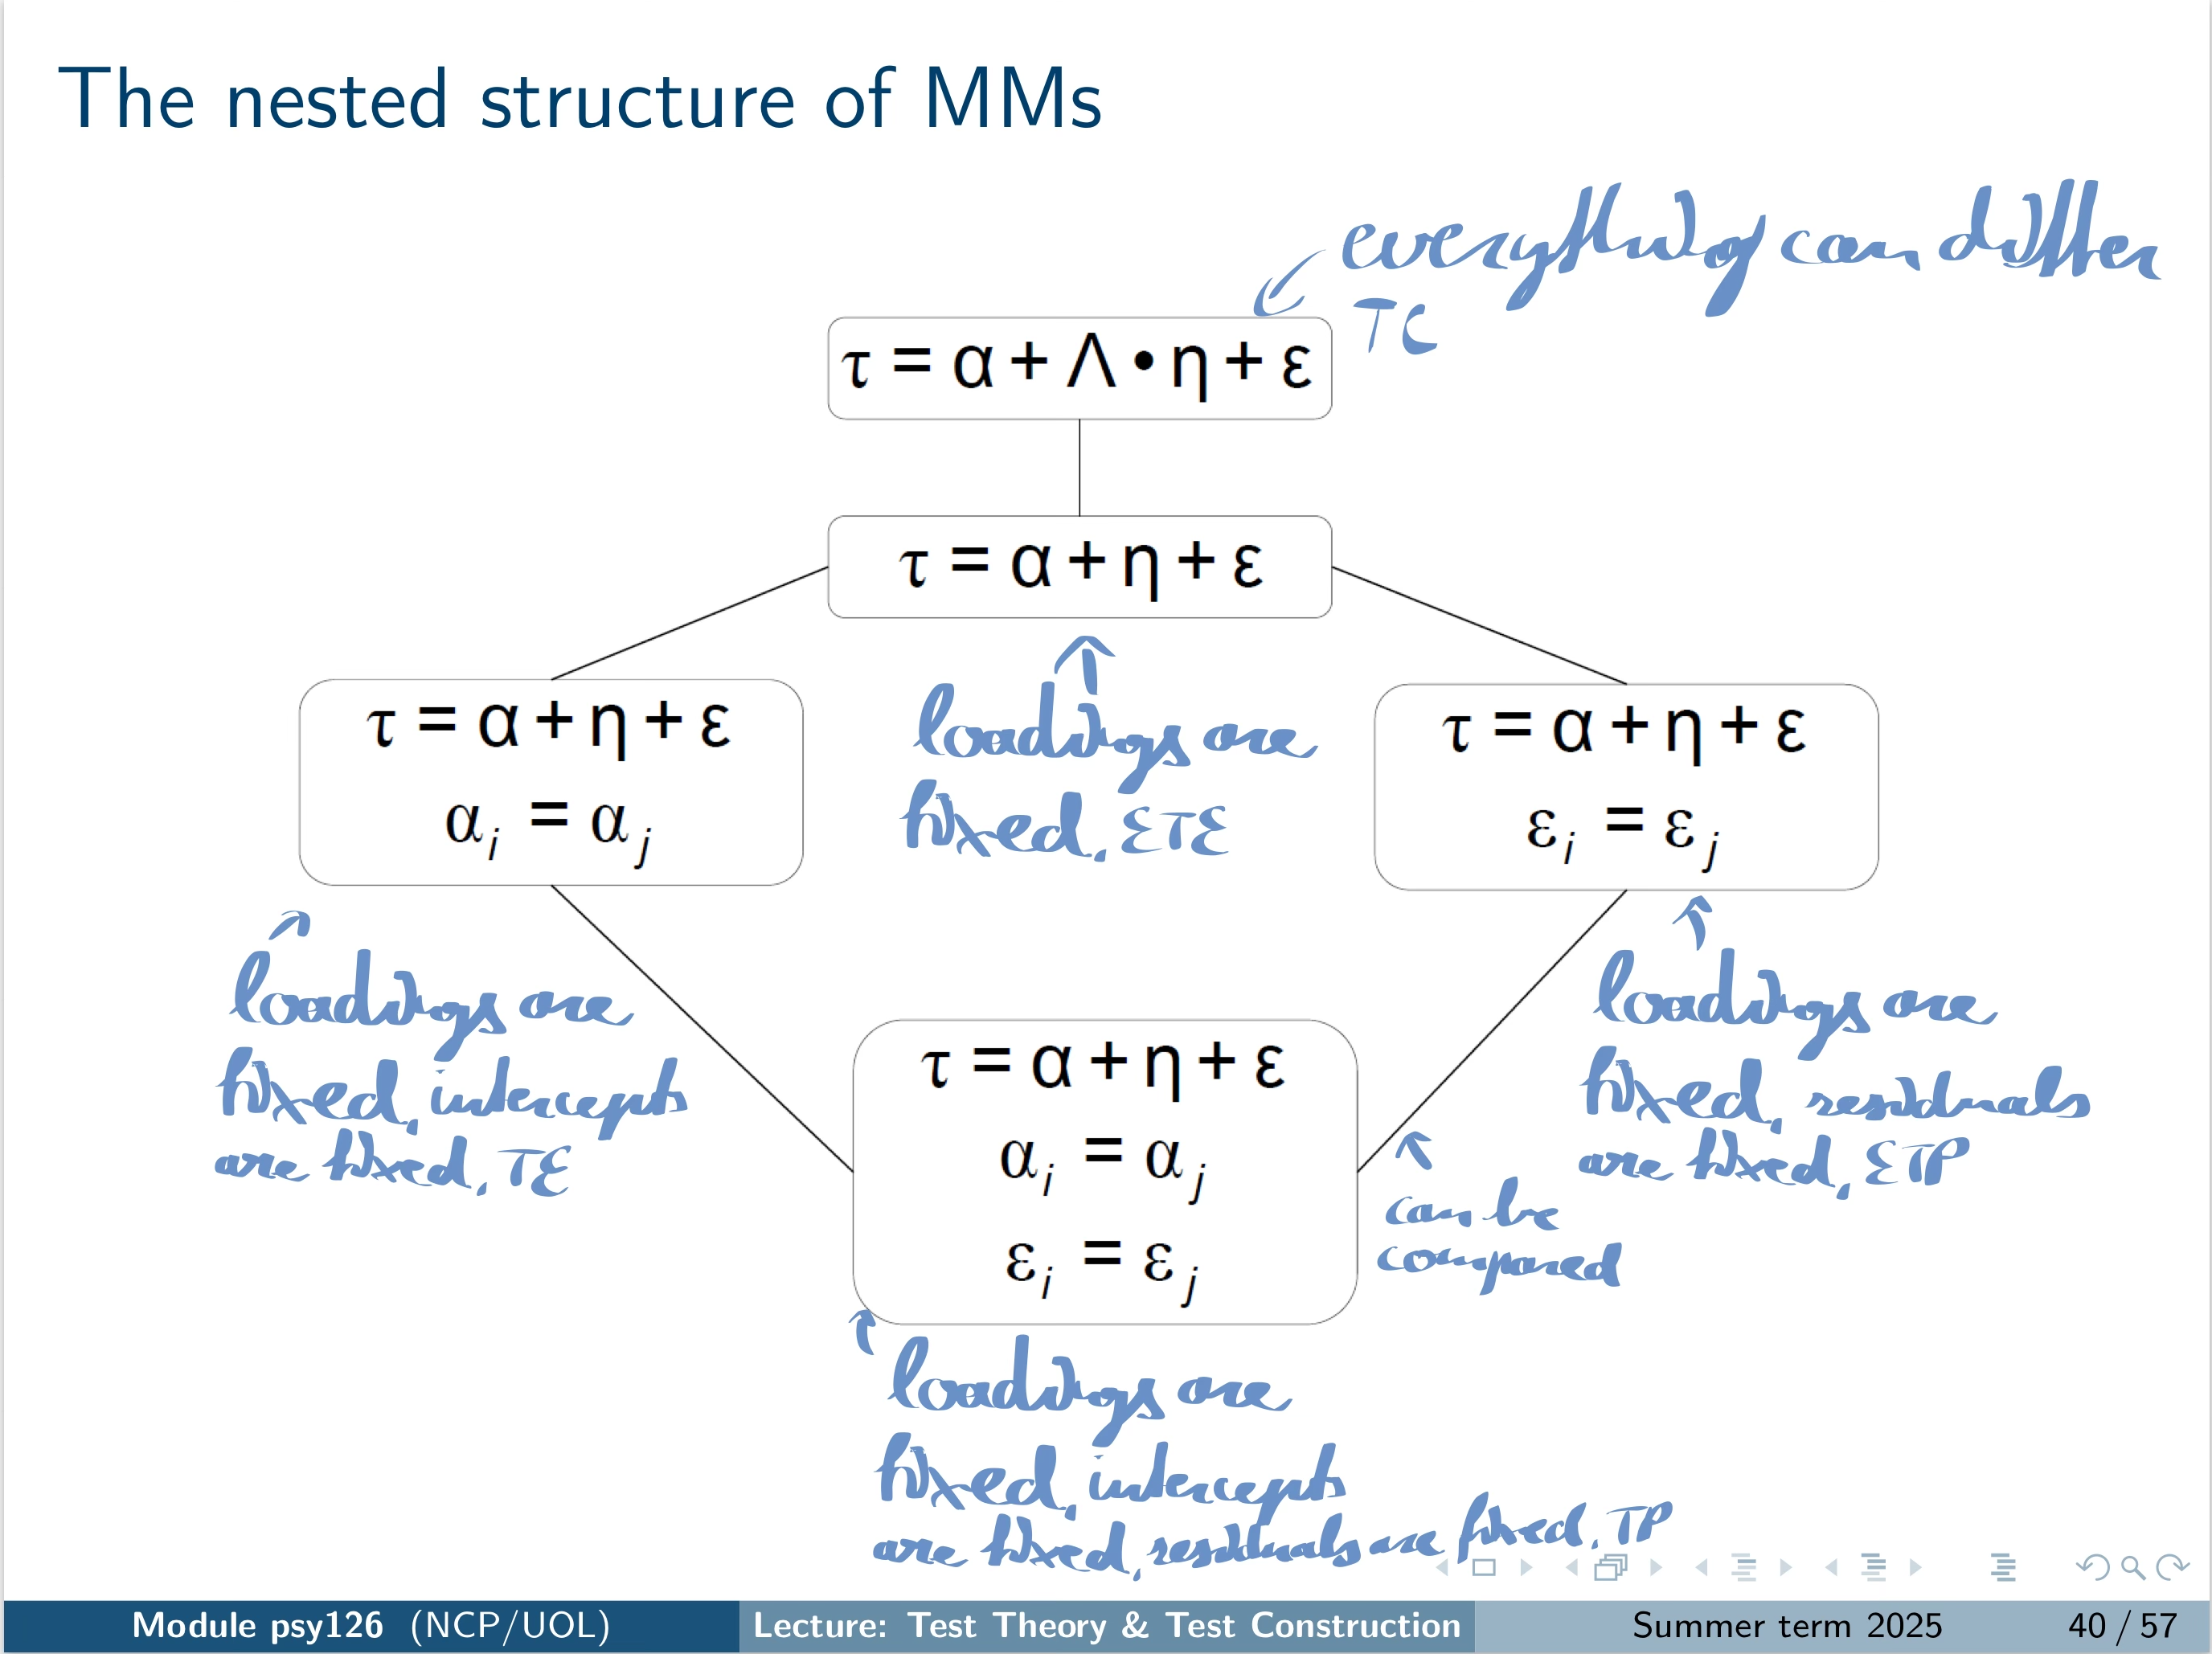 The nested structure of MMs
everything can differ
TC
τ = α + Λ • η + ε
τ = α + η + ε
loadings are
fixed, ETE
τ = α + η + ε
α i = α j
loadings are
fixed, intercepts
are fixed, TE
τ = α + η + ε
ε i = ε j
loadings are
fixed, residuals
are fixed, ETP
τ = α + η + ε
α i = α j
ε i = ε j
can be
compared
loadings are
fixed, intercepts
are fixed, residuals are fixed, TP
Module psy126 (NCP/UOL) Lecture: Test Theory & Test Construction Summer term 2025 40 / 57